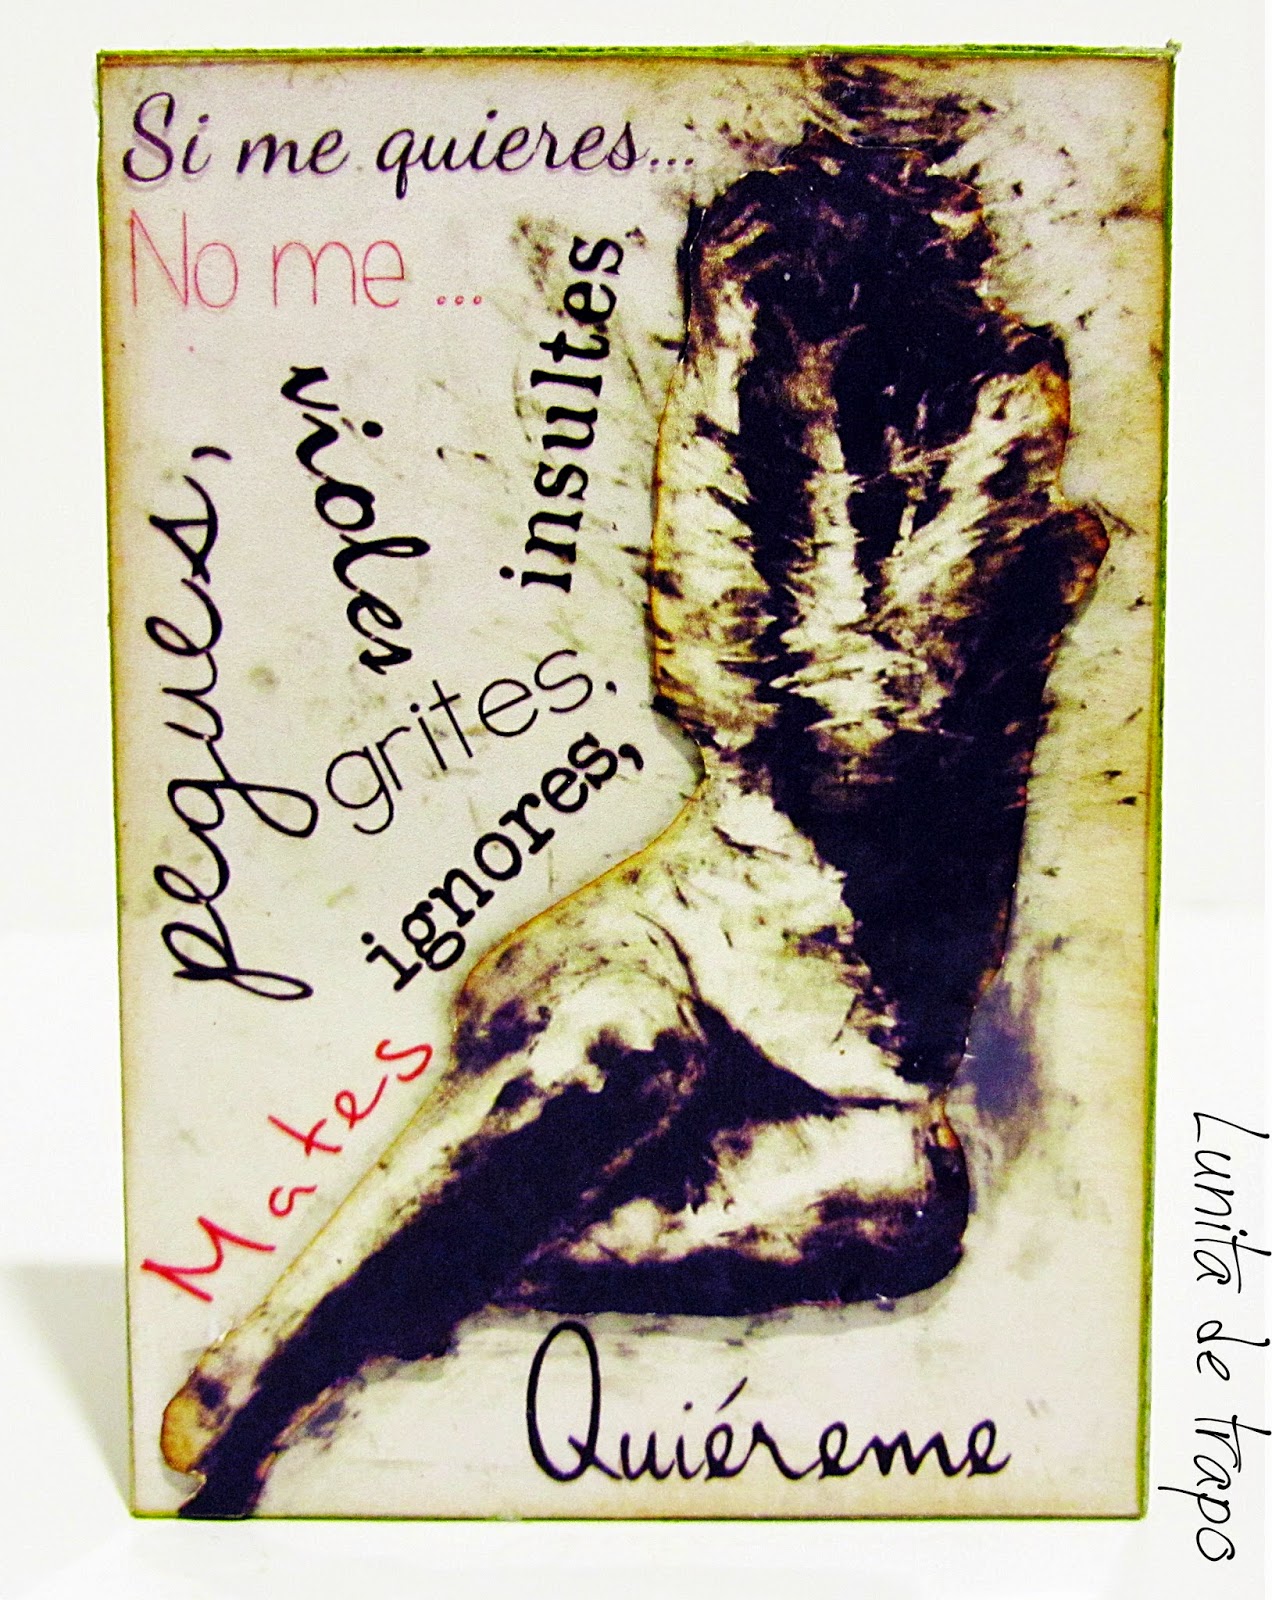 Si me quieres...
No me ...
pegues,
violes
insultes,
grites,
ignores,
Mates
Quiéreme
Lunita de trapo